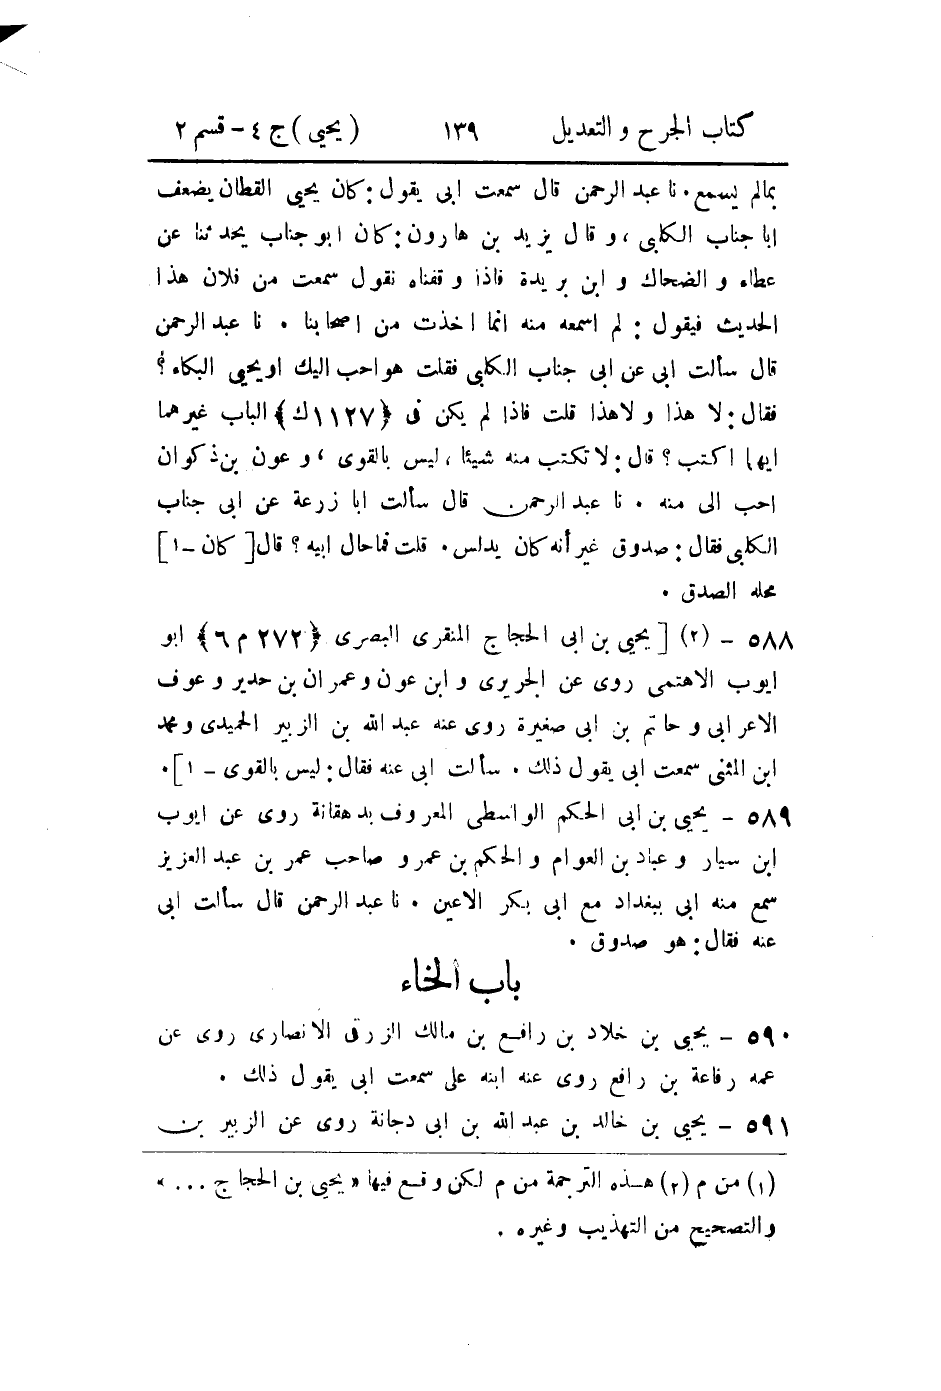 كتاب الجرح و التعديل ١٣٩ ( يحيى ) ج ٤ - قسم ٢
بمالم يسمع . نا عبد الرحمن قال سمعت ابى يقول : كان يحيى القطان يضعف
ابا جناب الكلبى ، و قال يزيد بن هارون : كان ابو جناب يحدثنا عن
عطاء و الضحاك و ابن بريدة فاذا وقفناه نقول سمعت من فلان هذا
الحديث فيقول : لم اسمعه منه انما اخذت من اصحابنا . نا عبد الرحمن
قال سألت ابى عن ابى جناب الكلبى فقلت هو احب اليك او يحيى البكاء ؟
فقال : لا هذا و لا هذا قلت فاذا لم يكن فى ﴿ ١١٢٧ ك ﴾ الباب غيرهما
ايهما اكتب ؟ قال : لا تكتب منه شيئا ، ليس بالقوى ، و عون بن ذكوان
احب الى منه . نا عبد الرحمن قال سألت ابا زرعة عن ابى جناب
الكلبى فقال : صدوق غير أنه كان يدلس . قلت فما حال ابيه ؟ قال [ كان - ١ ]
محله الصدق .
٥٨٨ - (٢) [ يحيى بن ابى الحجاج المنقرى البصرى ﴿ ٢٧٢ م ٦ ﴾ ابو
ايوب الاهتمى روى عن الجريرى و ابن عون و عمران بن حدير و عوف
الاعرابى و حاتم بن ابى صغيرة روى عنه عبد الله بن الزبير الحميدى و محمد
ابن المثنى سمعت ابى يقول ذلك . سألت ابى عنه فقال : ليس بالقوى - ١ ] .
٥٨٩ - يحيى بن ابى الحكم الواسطى المعروف بدهقانة روى عن ايوب
ابن سيار و عباد بن العوام و الحكم بن عمرو صاحب عمر بن عبد العزيز
سمع منه ابى ببغداد مع ابى بكر الاعين . نا عبد الرحمن قال سألت ابى
عنه فقال : هو صدوق .
باب الخاء
٥٩٠ - يحيى بن خلاد بن رافع بن مالك الزرقى الانصارى روى عن
عمه رفاعة بن رافع روى عنه ابنه على سمعت ابى يقول ذلك .
٥٩١ - يحيى بن خالد بن عبد الله بن ابى دجانة روى عن الزبير بن
(١) من م (٢) هذه الترجمة من م لكن وقع فيها « يحيى بن الحجاج ... »
والتصحيح من التهذيب وغيره .